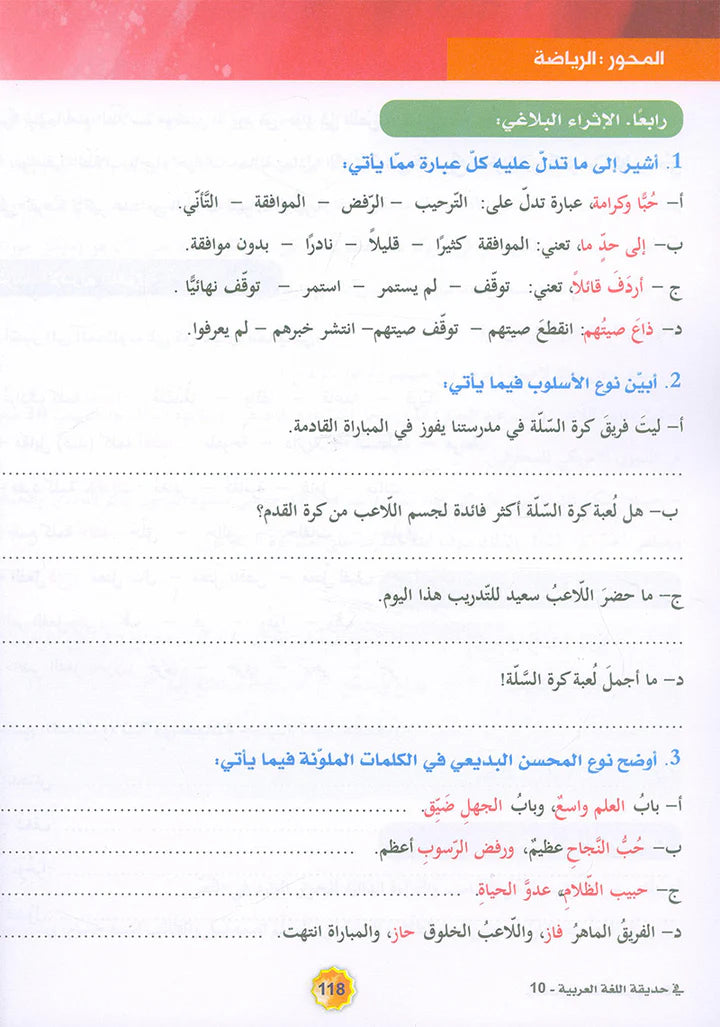 المحور : الرياضة
رابعًا. الإثراء البلاغي:
1. أشير إلى ما تدلّ عليه كلّ عبارة ممّا يأتي:
أ– حُبًّا وكرامة، عبارة تدلّ على: التّرحيب – الرّفض – الموافقة – التَّأنّي.
ب– إلى حدٍّ ما، تعني: الموافقة كثيرًا – قليلاً – نادرًا – بدون موافقة.
ج – أردَفَ قائلاً، تعني: توقّف – لم يستمر – استمر – توقّف نهائيًّا .
د– ذاعَ صيتُهم: انقطعَ صيتهم – توقّف صيتهم– انتشر خبرهم – لم يعرفوا.
2. أبيّن نوع الأسلوب فيما يأتي:
أ– ليتَ فريقَ كرة السّلّة في مدرستنا يفوز في المباراة القادمة.
ب– هل لُعبة كرة السّلّة أكثر فائدة لجسم اللّاعب من كرة القدم؟
ج– ما حضرَ اللّاعبُ سعيد للتّدريب هذا اليوم.
د– ما أجملَ لُعبة كرة السَّلّة!
3. أوضح نوع المحسن البديعي في الكلمات الملوّنة فيما يأتي:
أ– بابُ العلم واسعٌ، وبابُ الجهلِ ضَيّق.
ب– حُبُّ النَّجاحِ عظيمٌ، ورفض الرّسوبِ أعظم.
ج– حبيب الظّلامِ، عدوَّ الحياةِ.
د– الفريقُ الماهرُ فاز، واللّاعبُ الخلوق حاز، والمباراة انتهت.
في حديقة اللغة العربية - 10
118